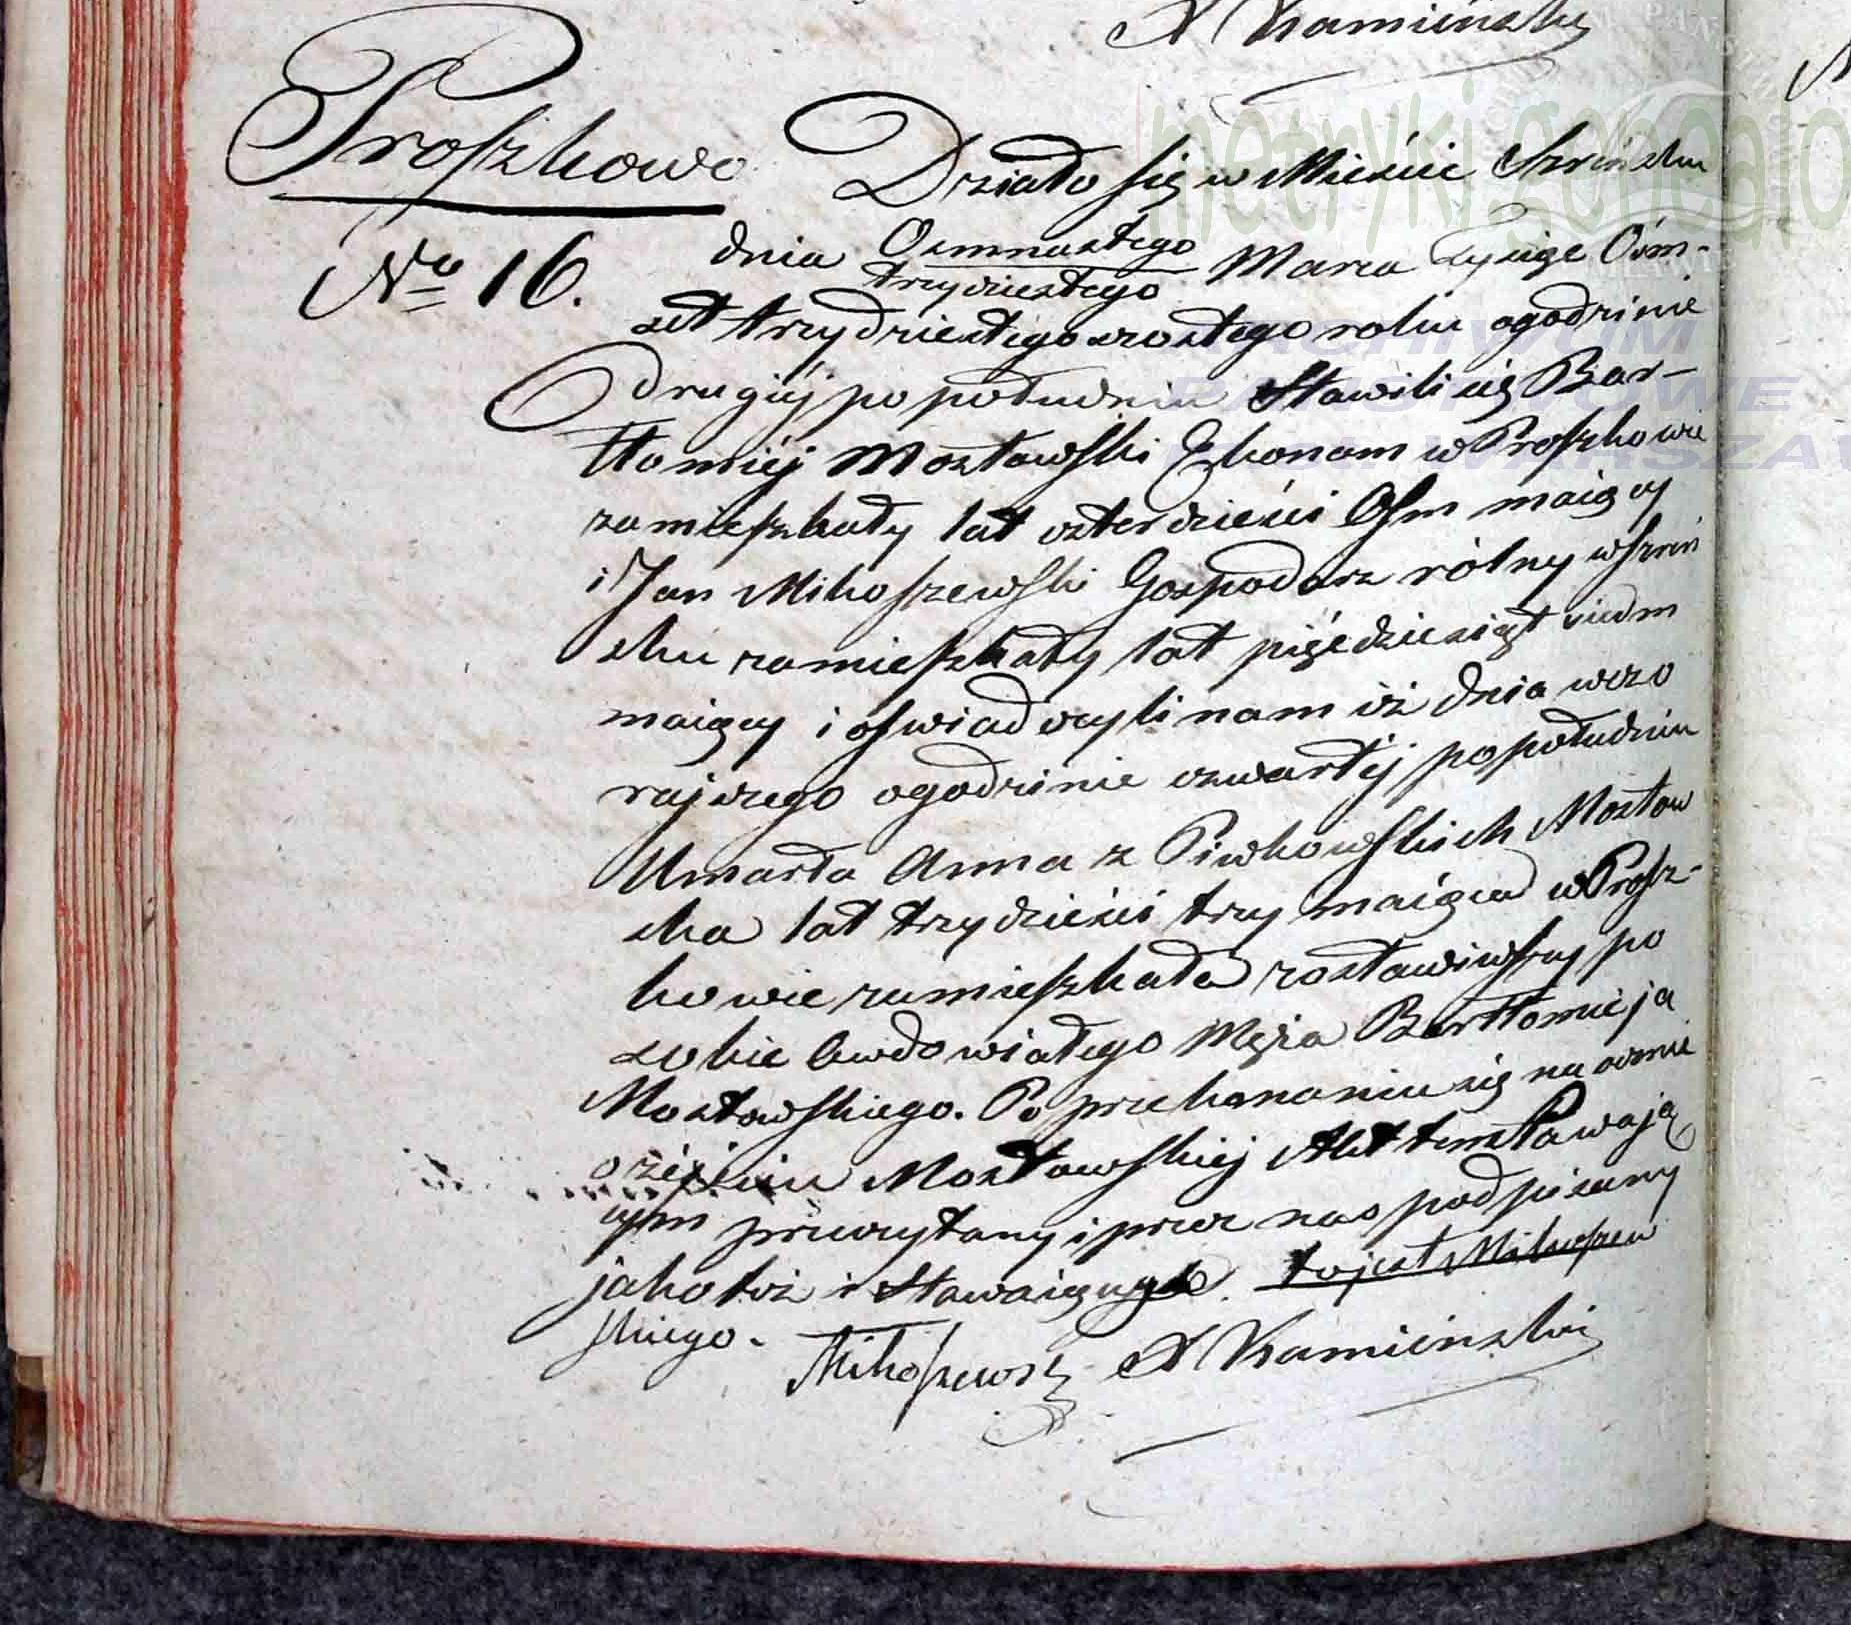 A Kamieński
Proszkowo
No 16.
Działo się w Mieście Szreńsku
dnia Osmnastego
trzydziestego Marca Tysiąc Óśm-
set trzydziestego szostego roku ogodzinie
drugiéj po południu Stawili się Bar-
tłomiéj Mostawski Ekonom w Proszkowie
zamieszkały lat czterdzieści Osm maiący
i Jan Mikoszewski Gospodarz rólny wSzreń
sku zamieszkały lat pięćdziesiąt siedm
maiący i oswiadczyli nam iż dnia wczo
rajszego ogodzinie czwartéj popołudniu
Umarła Anna z Piwkowskich Mostow
ska lat trzydzieści trzy maiąca wProsz-
kowie zamieszkała zostawiwszy po
sobie Owdowiałego Męża Bartłomieja
Mostowskiego. Po przekonaniu się na ocznie
ozejściu Mostowskiéj Akt ten stawają
cym przeczytany i przez nas podpisany
jakotéż i Stawaiącego. to jest Mikoszew
skiego.
Mikoszewski A Kamieński
metryki.genealo
ARCHIWUM
PAŃSTWOWE
WARSZAW